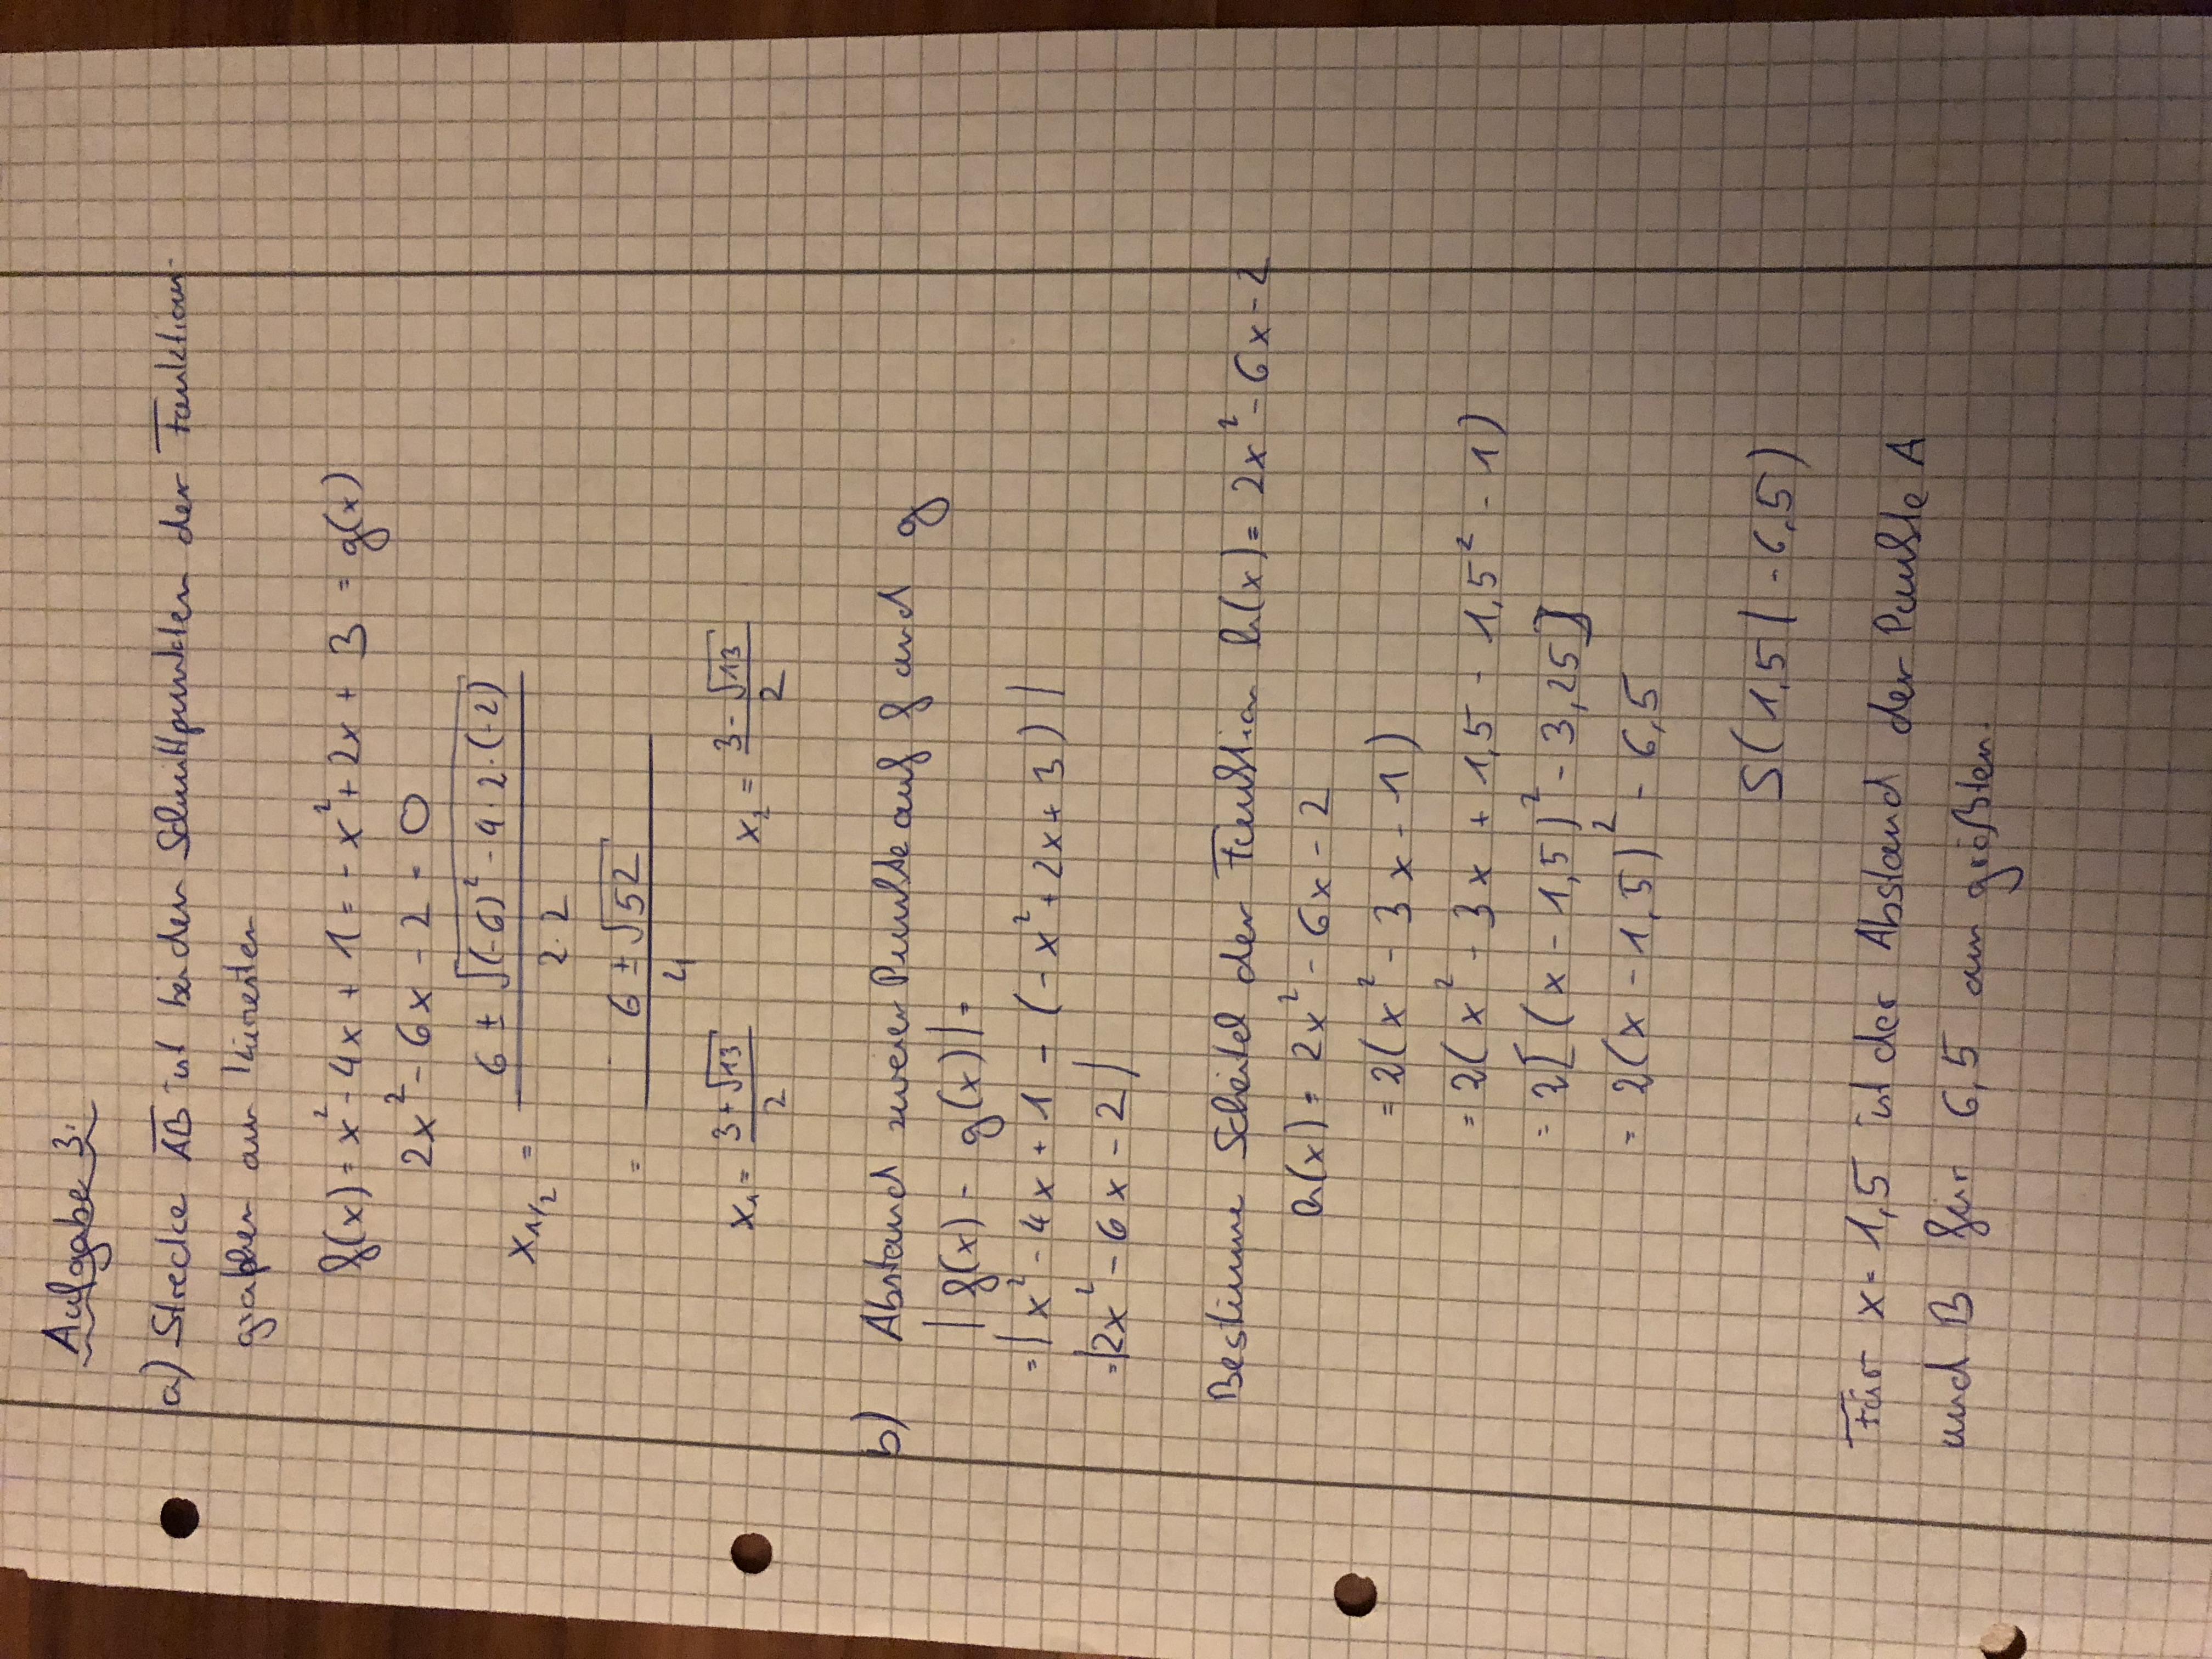 Aufgabe 3:
a) Strecke AB ist bei den Schnittpunkten der Funktions-
graphen am kürzesten
f(x) = x² - 4x + 1 = - x² + 2x + 3 = g(x)
2x² - 6x - 2 = 0
x₁/₂ = (6 ± √((-6)² - 4·2·(-2))) / (2·2)
= (6 ± √52) / 4
x₁ = (3+√13)/2 x₂ = (3-√13)/2
b) Abstand zweier Punkte auf f und g
|f(x) - g(x)| =
= |x² - 4x + 1 - (-x² + 2x + 3)|
= |2x² - 6x - 2|
Bestimme Scheitel der Funktion h(x) = 2x² - 6x - 2
h(x) = 2x² - 6x - 2
= 2(x² - 3x - 1)
= 2(x² - 3x + 1,5 - 1,5² - 1)
= 2[(x - 1,5)² - 3,25]
= 2(x - 1,5)² - 6,5
S(1,5 | -6,5)
Für x = 1,5 ist der Abstand der Punkte A
und B für 6,5 am größten.